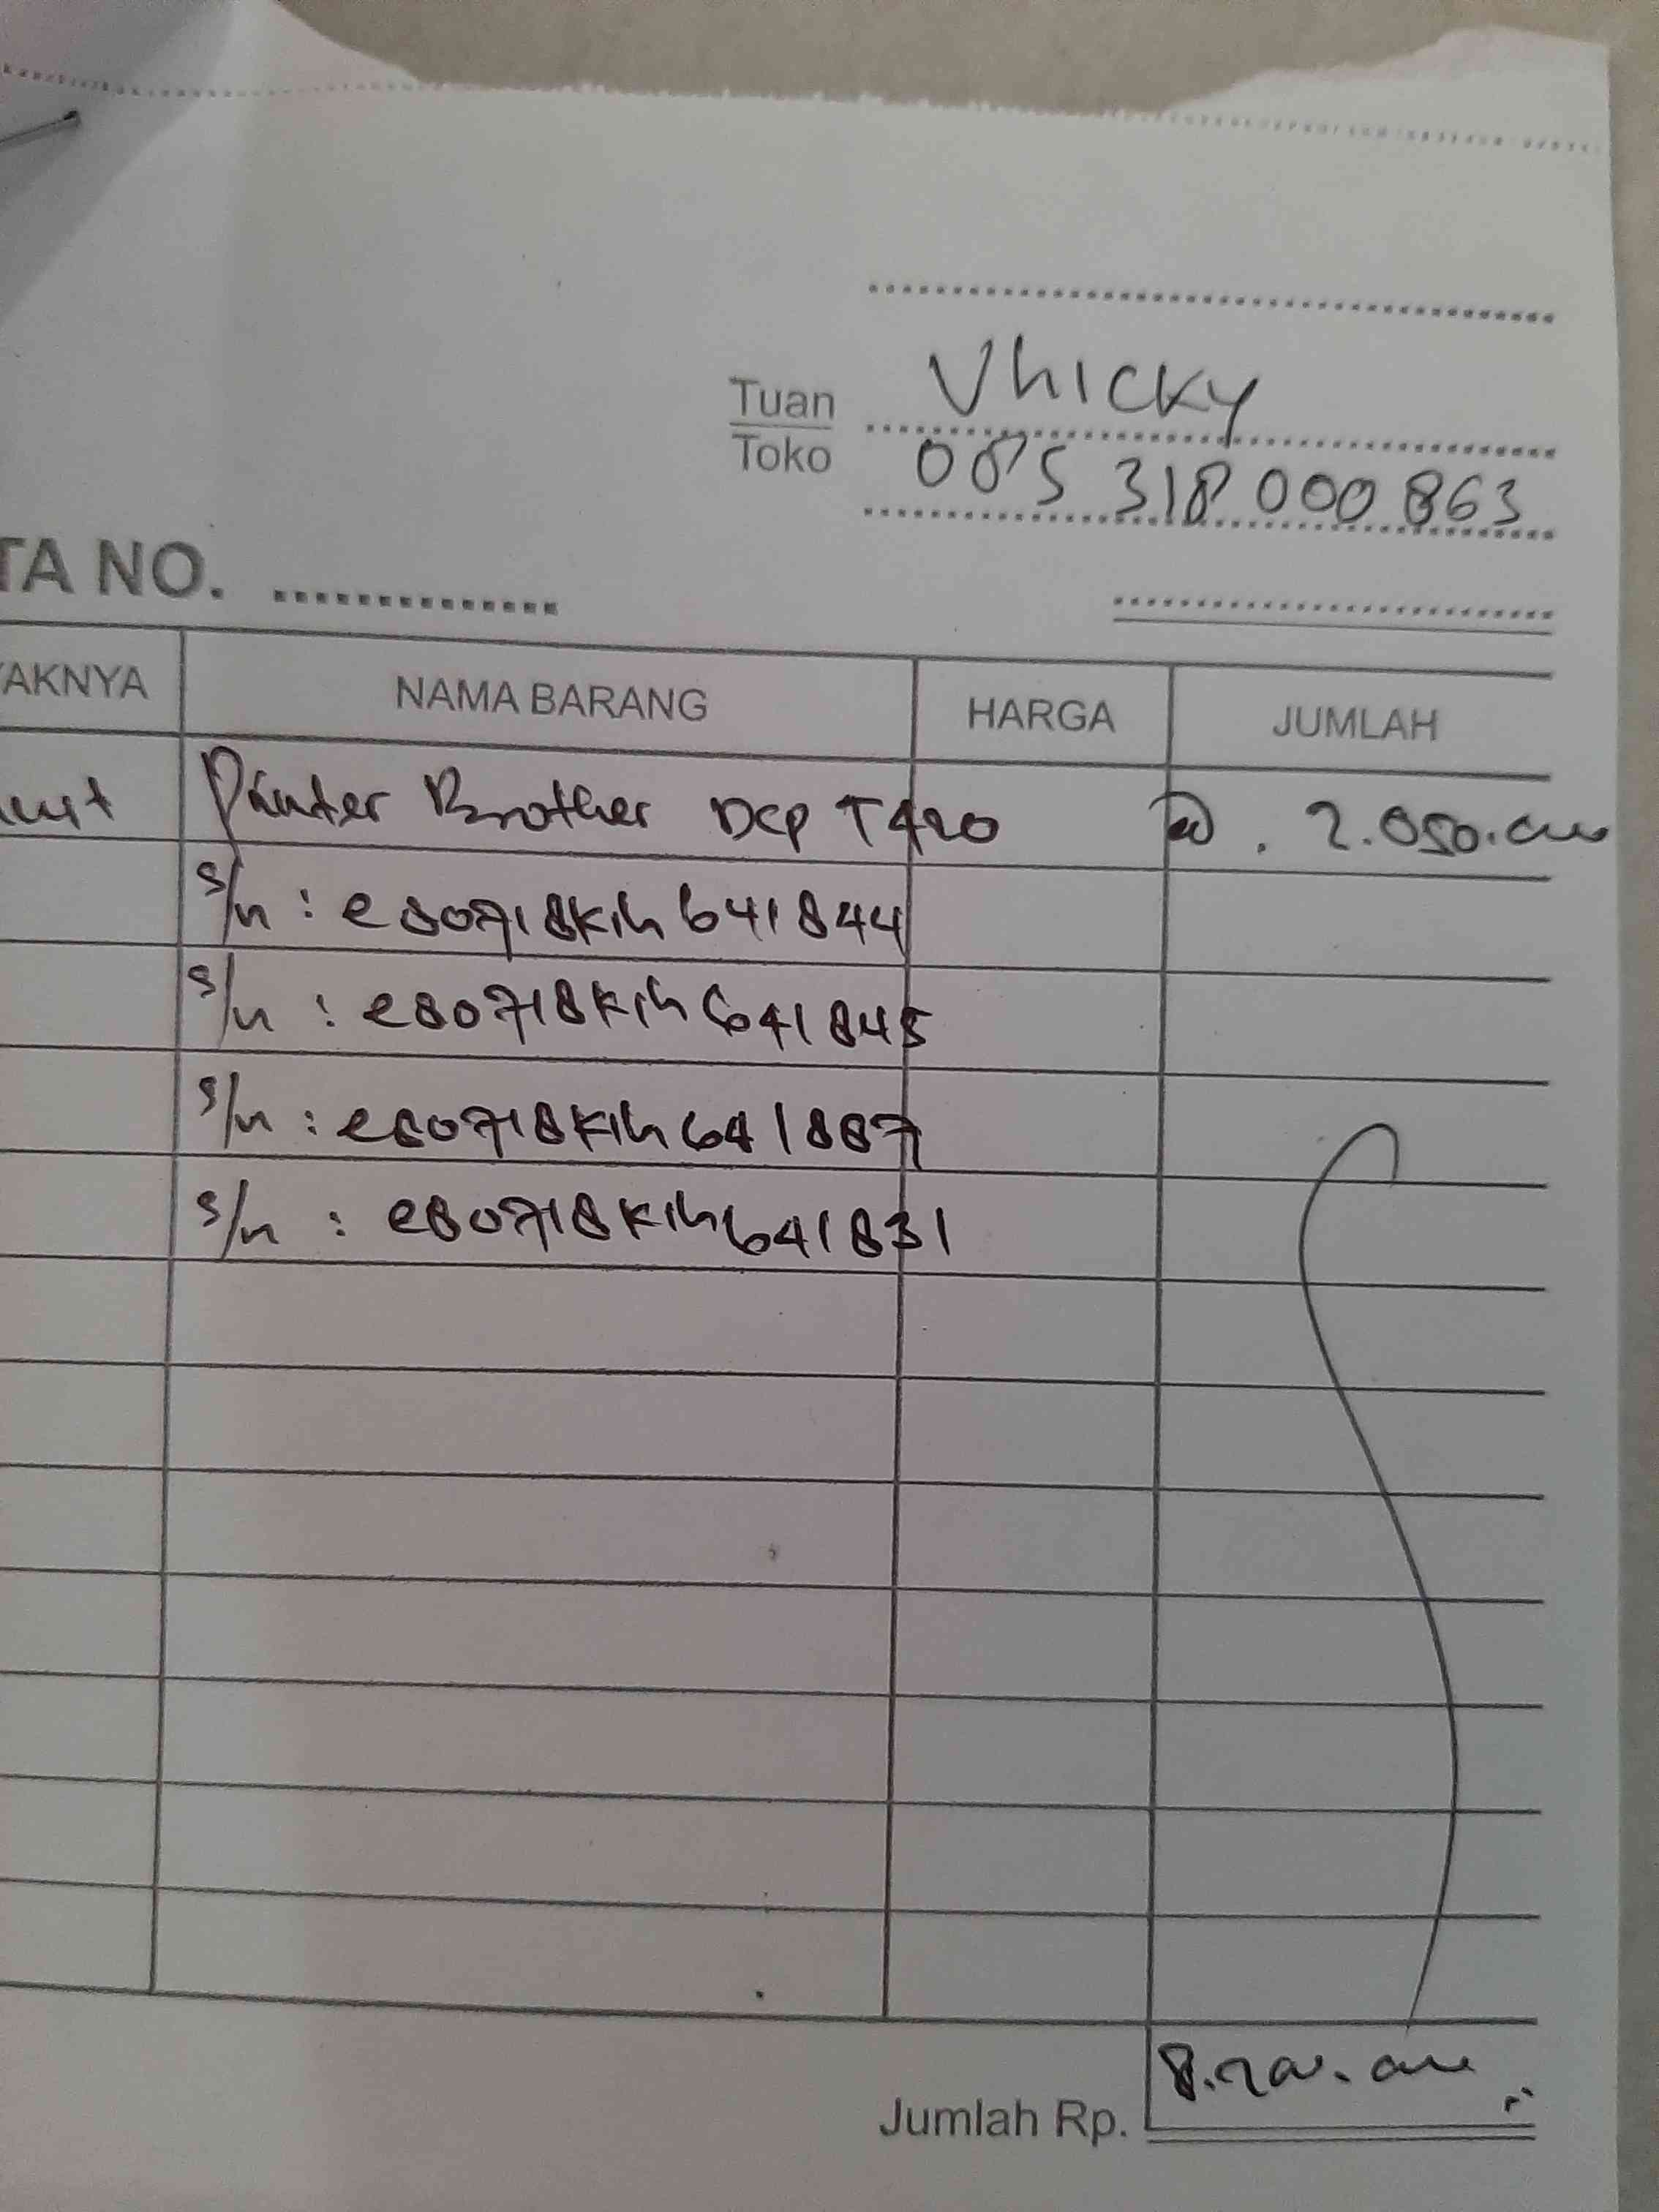 Vhicky
Tuan
Toko
085 318 000 863
TA NO.
YAKNYA NAMA BARANG HARGA JUMLAH
Printer Brother DCP T420 @. 2.050.000
s/n : e80718k1h641844
s/n : e80718k1h641845
s/n : e80718k1h641887
s/n : e80718k1h641831
Jumlah Rp. 8.200.000